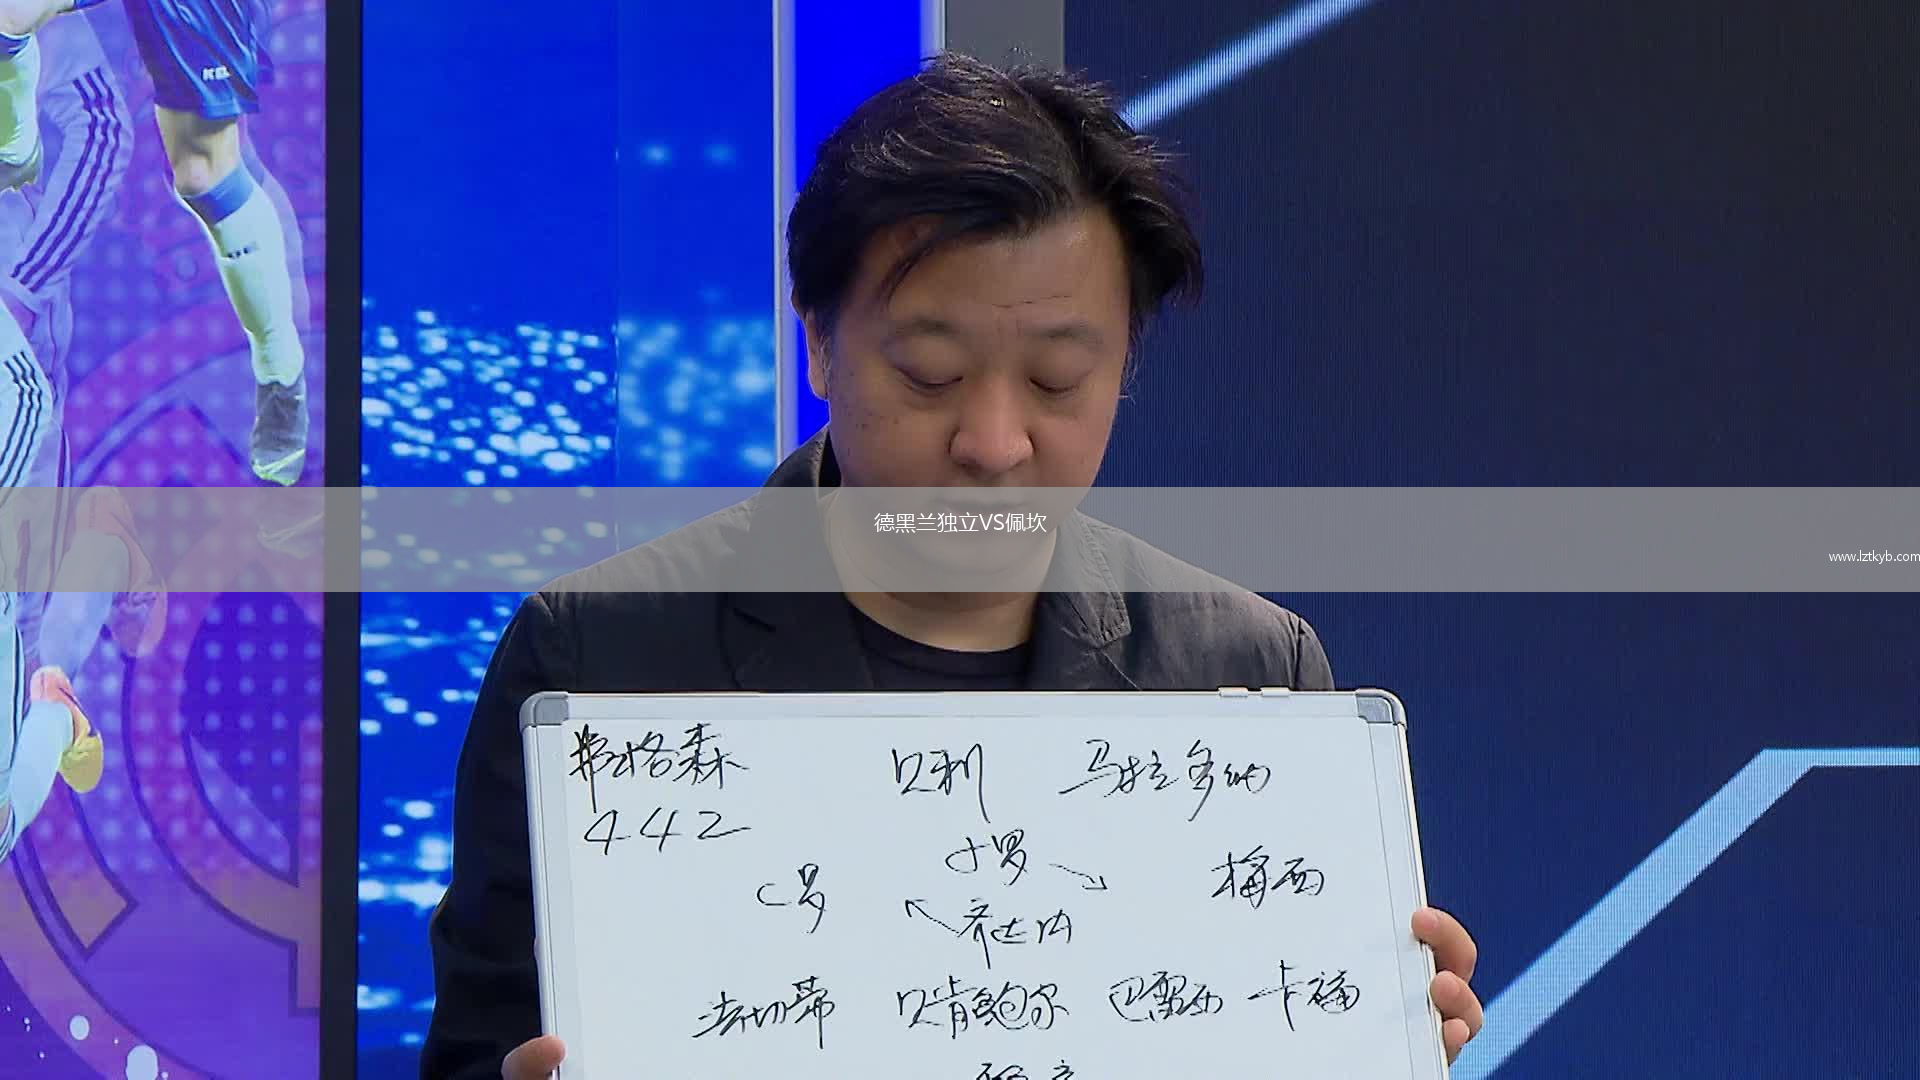 德黑兰独立VS佩坎
www.lztkyb.com
弗格森 贝利 马拉多纳
442
小罗
C罗 梅西
齐达内
法切蒂 贝肯鲍尔 巴雷西 卡福